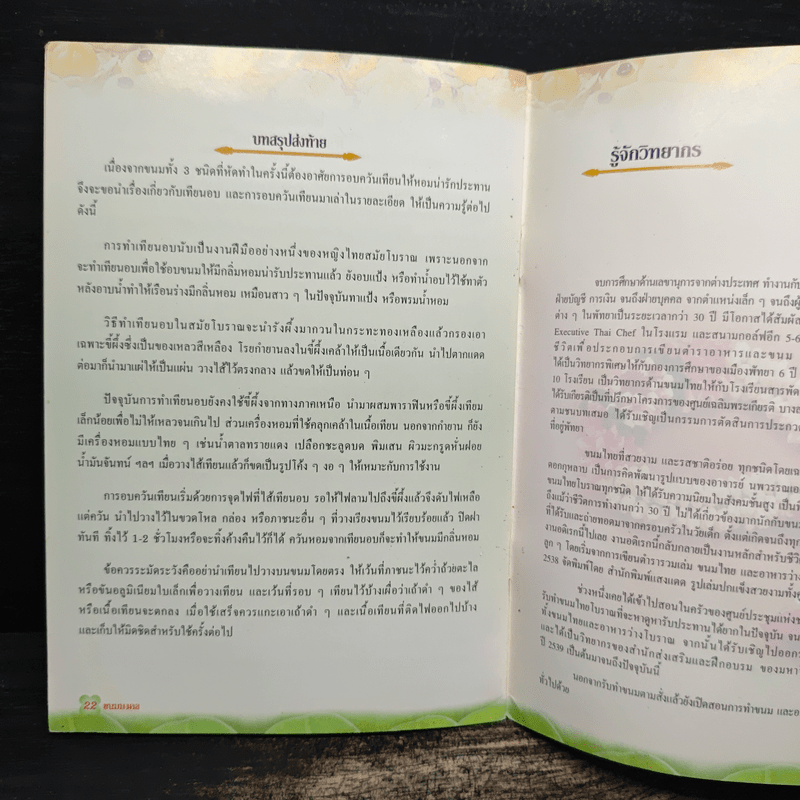 บทสรุปส่งท้าย
เนื่องจากขนมทั้ง 3 ชนิดที่หัดทำในครั้งนี้ต้องอาศัยการอบควันเทียนให้หอมน่ารักประทาน
จึงจะขอนำเรื่องเกี่ยวกับเทียนอบ และการอบควันเทียนมาเล่าในรายละเอียด ให้เป็นความรู้ต่อไป
ดังนี้
การทำเทียนอบนับเป็นงานฝีมืออย่างหนึ่งของหญิงไทยสมัยโบราณ เพราะนอกจาก
จะทำเทียนอบเพื่อใช้อบขนมให้มีกลิ่มหอมน่ารับประทานแล้ว ยังอบแป้ง หรือทำน้ำอบไว้ใช้ทาตัว
หลังอาบน้ำทำให้เรือนร่างมีกลิ่นหอม เหมือนสาว ๆ ในปัจจุบันทาแป้ง หรือพรมน้ำหอม
วิธีทำเทียนอบในสมัยโบราณจะนำรังผึ้งมากวนในกระทะทองเหลืองแล้วกรองเอา
เฉพาะขี้ผึ้งซึ่งเป็นของเหลวสีเหลือง โรยกำยานลงในขี้ผึ้งเคล้าให้เป็นเนื้อเดียวกัน นำไปตากแดด
ต่อมาก็นำมาแผ่ให้เป็นแผ่น วางไส้ไว้ตรงกลาง แล้วขดให้เป็นท่อน ๆ
ปัจจุบันการทำเทียนอบยังคงใช้ขี้ผึ้งจากทางภาคเหนือ นำมาผสมพาราฟินหรือขี้ผึ้งเทียม
เล็กน้อยเพื่อไม่ให้เหลวจนเกินไป ส่วนเครื่องหอมที่ใช้คลุกเคล้าในเนื้อเทียน นอกจากกำยาน ก็ยัง
มีเครื่องหอมแบบไทย ๆ เช่นน้ำตาลทรายแดง เปลือกชะลูดบด พิมเสน ผิวมะกรูดหั่นฝอย
น้ำมันจันทน์ ฯลฯ เมื่อวางไส้เทียนแล้วก็ขดเป็นรูปโค้ง ๆ งอ ๆ ให้เหมาะกับการใช้งาน
การอบควันเทียนเริ่มด้วยการจุดไฟที่ไส้เทียนอบ รอให้ไฟลามไปถึงขี้ผึ้งแล้วจึงดับไฟเหลือ
แต่ควัน นำไปวางไว้ในขวดโหล กล่อง หรือภาชนะอื่น ๆ ที่วางเรียงขนมไว้เรียบร้อยแล้ว ปิดฝา
ทันที ทิ้งไว้ 1-2 ชั่วโมงหรือจะทิ้งค้างคืนไว้ก็ได้ ควันหอมจากเทียนอบก็จะทำให้ขนมมีกลิ่นหอม
ข้อควรระมัดระวังคืออย่านำเทียนอบไปวางบนขนมโดยตรง ให้เว้นที่ภาชนะไว้คว่ำถ้วยตะไล
หรือขันอลูมิเนียมใบเล็กเพื่อวางเทียน และเว้นที่รอบ ๆ เทียนไว้บ้างเผื่อว่าเถ้าดำ ๆ ของไส้
หรือเนื้อเทียนจะตกลง เมื่อใช้เสร็จควรแกะเอาเถ้าดำ ๆ และเนื้อเทียนที่ติดไฟออกไปบ้าง
และเก็บให้มิดชิดสำหรับใช้ครั้งต่อไป
22
รู้จักวิทยากร
จบการศึกษาด้านเลขานุการจากต่างประเทศ ทำงานกับ
ฝ่ายบัญชี การเงิน จนถึงฝ่ายบุคคล จากตำแหน่งเล็ก ๆ จนถึงผู้
ต่าง ๆ ในพัทยาเป็นระยะเวลากว่า 30 ปี มีโอกาสได้สัมผัส
Executive Thai Chef ในโรงแรม และสนามกอล์ฟอีก 5-6
ชีวิตเพื่อประกอบการเขียนตำราอาหารและขนม
ได้เป็นวิทยากรพิเศษให้กับกองการศึกษาของเมืองพัทยา 6 ปี
10 โรงเรียน เป็นวิทยากรด้านขนมไทยให้กับโรงเรียนสารพัด
ได้รับเกียรติเป็นที่ปรึกษาโครงการของศูนย์เฉลิมพระเกียรติ บาง
ตามชนบทเสมอ ได้รับเชิญเป็นกรรมการตัดสินการประกว
ที่อยู่พัทยา
ขนมไทยที่สวยงาม และรสชาติอร่อย ทุกชนิดโดยเฉ
ดอกกุหลาบ เป็นการคิดพัฒนารูปแบบของอาจารย์ นพวรรณเอ
ขนมไทยโบราณทุกชนิด ให้ได้รับความนิยมในสังคมชั้นสูง เป็นที่
ถึงแม้ว่าชีวิตการทำงานกว่า 30 ปี ไม่ได้เกี่ยวข้องมากนักกับขน
ที่ได้รับและถ่ายทอดมาจากครอบครัวในวัยเด็ก ตั้งแต่เกิดจนถึงทุก
งานอดิเรกนี้ไปเลย งานอดิเรกนี้กลับกลายเป็นงานหลักสำหรับชีวิต
ลูก ๆ โดยเริ่มจากการเขียนตำรารวมเล่ม ขนมไทย และอาหารว่าง
2538 จัดพิมพ์โดย สำนักพิมพ์แสงแดด รูปเล่มปกแข็งสวยงามทั้งคู่
ช่วงหนึ่งเคยได้เข้าไปสอนในครัวของศูนย์ประชุมแห่งช
รับทำขนมไทยโบราณที่จะหาดูหารับประทานได้ยากในปัจจุบัน จน
ทั้งขนมไทยและอาหารว่างโบราณ จากนั้นได้รับเชิญไปออกร
และได้เป็นวิทยากรของสำนักส่งเสริมและฝึกอบรม ของมหา
ปี 2539 เป็นต้นมาจนถึงปัจจุบันนี้
นอกจากรับทำขนมตามสั่งแล้วยังเปิดสอนการทำขนม และอ
ทั่วไปด้วย